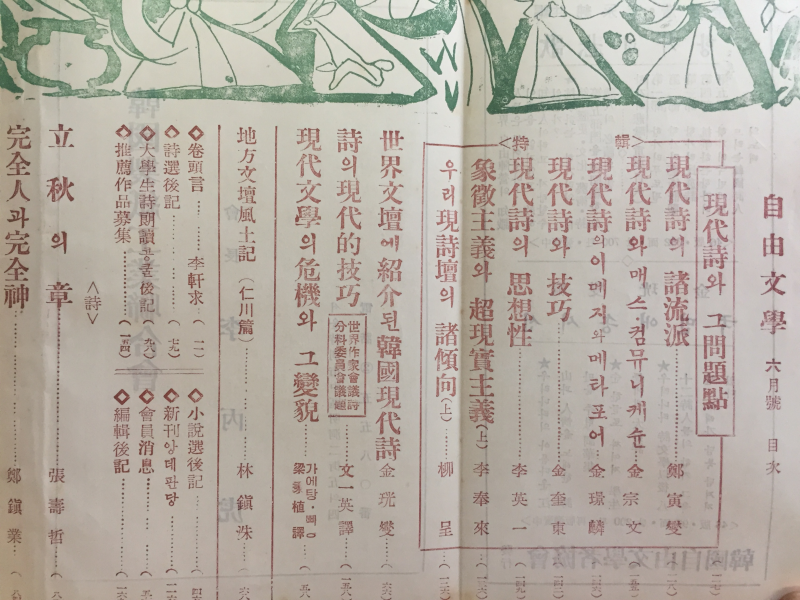 自由文學 六月號 目次
現代詩와 그 問題點
<特輯>
現代詩의 諸流派 鄭寅燮
現代詩와 매스·컴뮤니케슌 金宗文
現代詩의 이메지와 메타포어 金璟麟
現代詩와 技巧 金奎東
現代詩의 思想性 李英一
象徵主義와 超現實主義(上) 李奉來
우리 現詩壇의 諸傾向(上) 柳呈
世界文壇에 紹介된 韓國現代詩 金珖燮
詩의 現代的 技巧 世界作家會議詩分科委員會議題 文一英 譯
現代文學의 危機와 그 變貌 가에탕·삐 梁 植 譯
地方文壇風土記 (仁川篇) 林鎭洙
◇卷頭言 李軒求 (一一)
◇詩選後記 (七九)
◇大學生詩朗讀콩쿨後記 (九八)
◇推薦作品募集 (一五四)
◇小說選後記
◇新刊안데판당
◇會員消息
◇編輯後記
<詩>
立秋의 章 張壽哲
完全人과 完全神 鄭鎭業